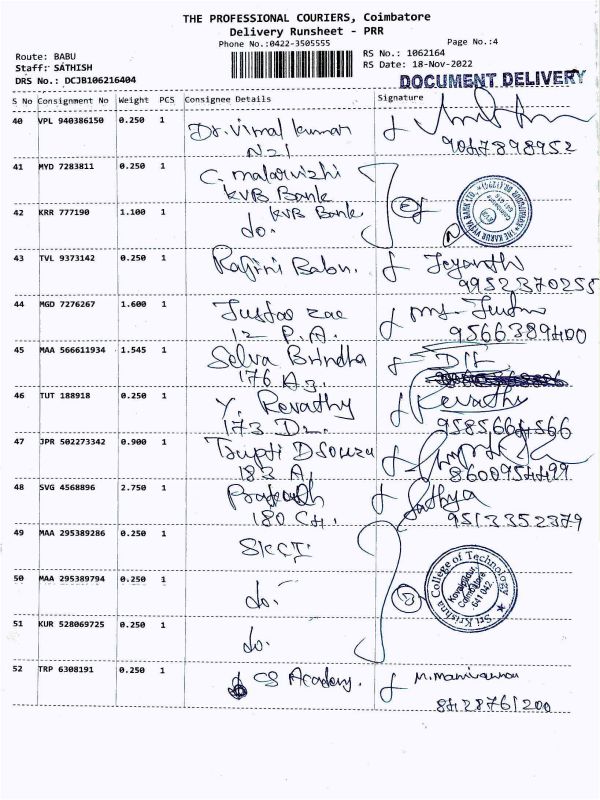 THE PROFESSIONAL COURIERS, Coimbatore
Delivery Runsheet - PRR
Phone No.:0422-3505555
Page No.:4
Route: BABU
RS No.: 1062164
Staff: SATHISH
RS Date: 18-Nov-2022
DRS No.: DCJB106216404
DOCUMENT DELIVERY
S No Consignment No Weight PCS Consignee Details Signature
40 VPL 940386150 0.250 1 Dr. Vimal Kumar
N21 9047898952
41 MYD 7283811 0.250 1 C. Malarvizhi
KVB Bank
42 KRR 777190 1.100 1 KVB Bank
do.
43 TVL 9373142 0.250 1 Rajini Babu. Jeyanthi
9952370255
44 MGD 7276267 1.600 1
12 P.A. 9566389400
45 MAA 566611934 1.545 1 Selva Brindha
176 A3.
46 TUT 188918 0.250 1 Y. Revathy Revathy
173 D2. 9585664566
47 JPR 502273342 0.900 1 Trupti Dsouza
183 A, 8600954499
48 SVG 4568896 2.750 1 Prakash Sathya
180 C4. 9513352379
49 MAA 295389286 0.250 1 SKCT
50 MAA 295389794 0.250 1 do.
Sri Krishna College of Technology
Kovaipudur,
Coimbatore
641 042.
51 KUR 528069725 0.250 1 do.
52 TRP 6308191 0.250 1 CS Academy.
8428761200